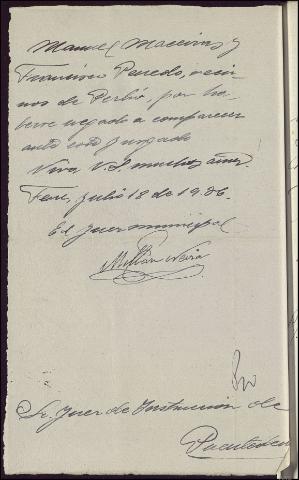 Manuel Maceiras y
Francisco Penedo, veci
nos de Perbio, por ha
berse negado a comparecer
ante este Juzgado
Viva V.S. muchos años
Fene, julio 18 de 1936.
El Juez municipal
Millán Neira
Sr. Juez de Instruccion de
Puentedeu